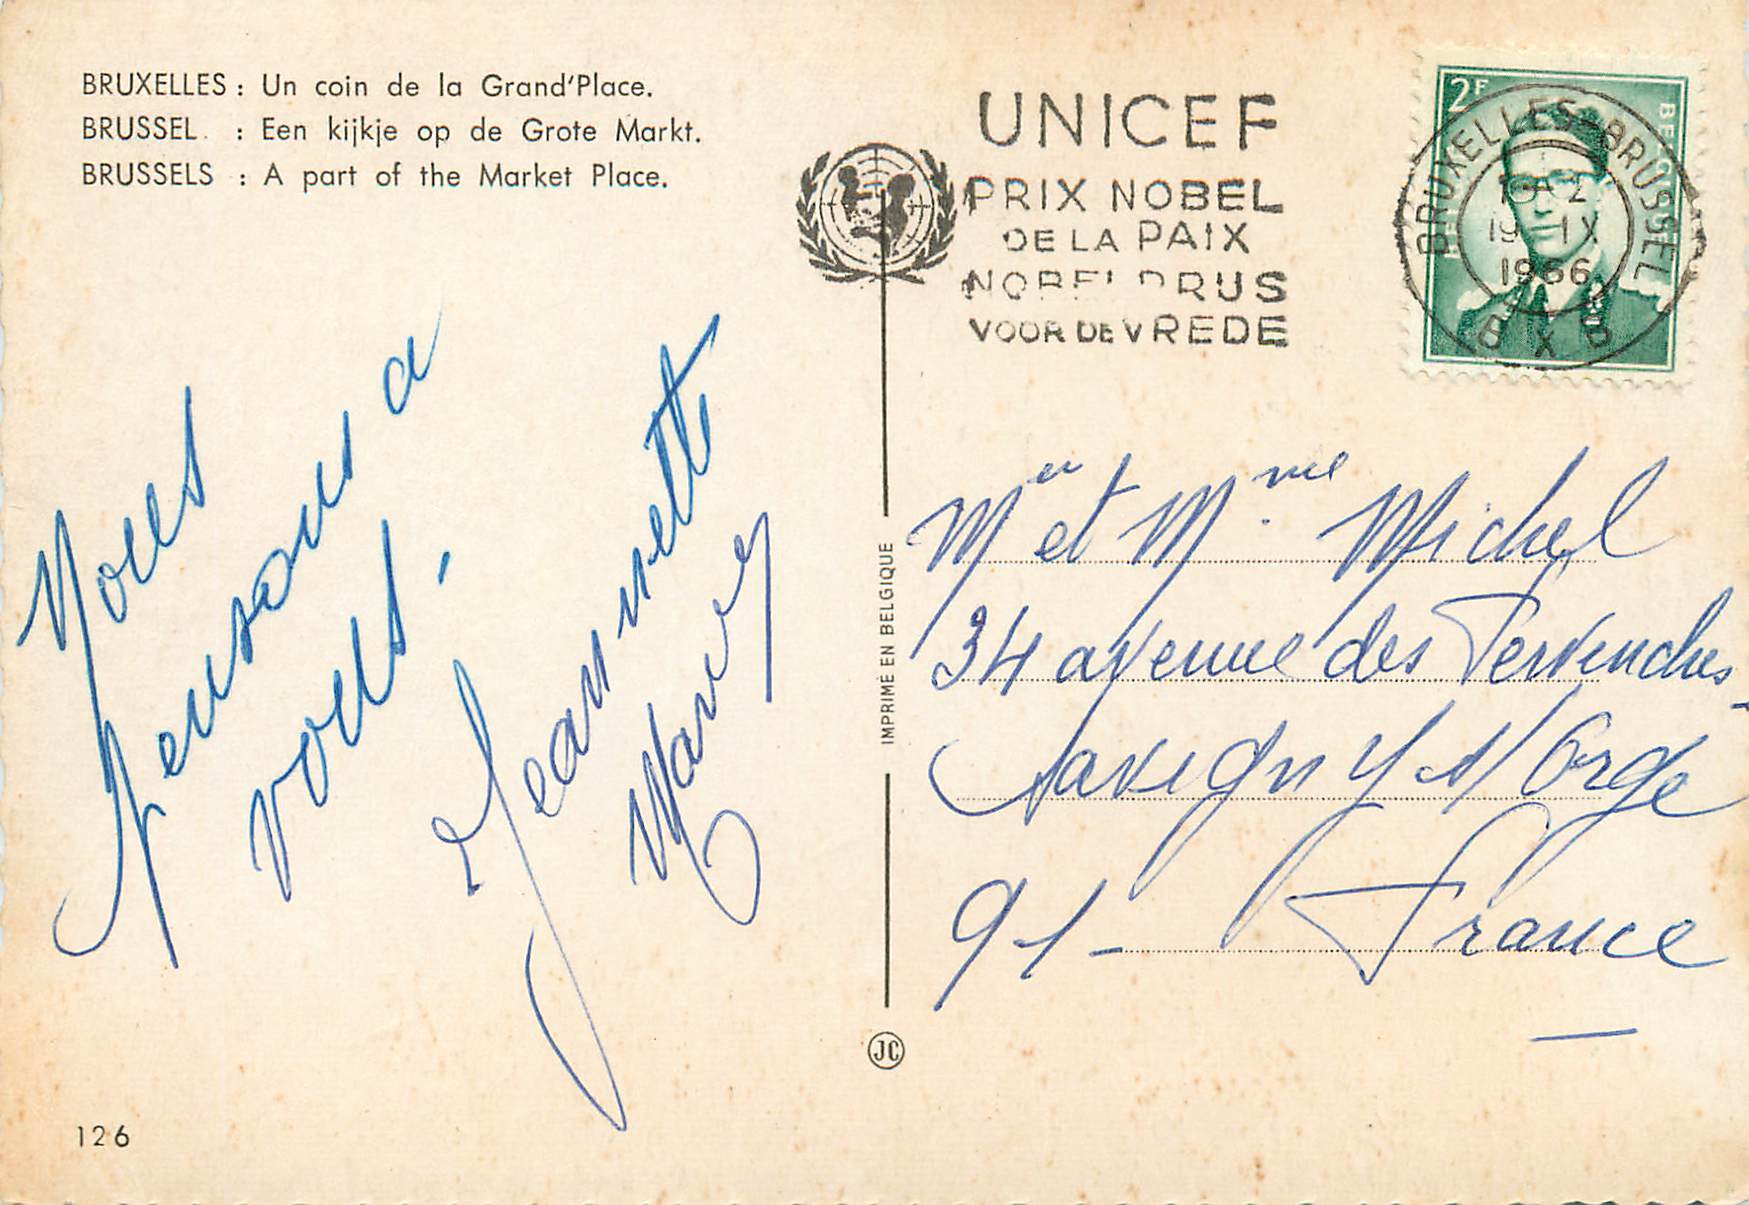 BRUXELLES : Un coin de la Grand'Place.
BRUSSEL : Een kijkje op de Grote Markt.
BRUSSELS : A part of the Market Place.
Nous
pensons a
vous.
Jeannette
126
IMPRIMÉ EN BELGIQUE
JC
UNICEF
PRIX NOBEL
DE LA PAIX
NOBELPRIJS
VOOR DE VREDE
2F
BRUXELLES BRUSSEL
19 IX
1966
B X B
Mr et Mme Michel
34 avenue des Pervenches
Savigny s/ Orge
91- France